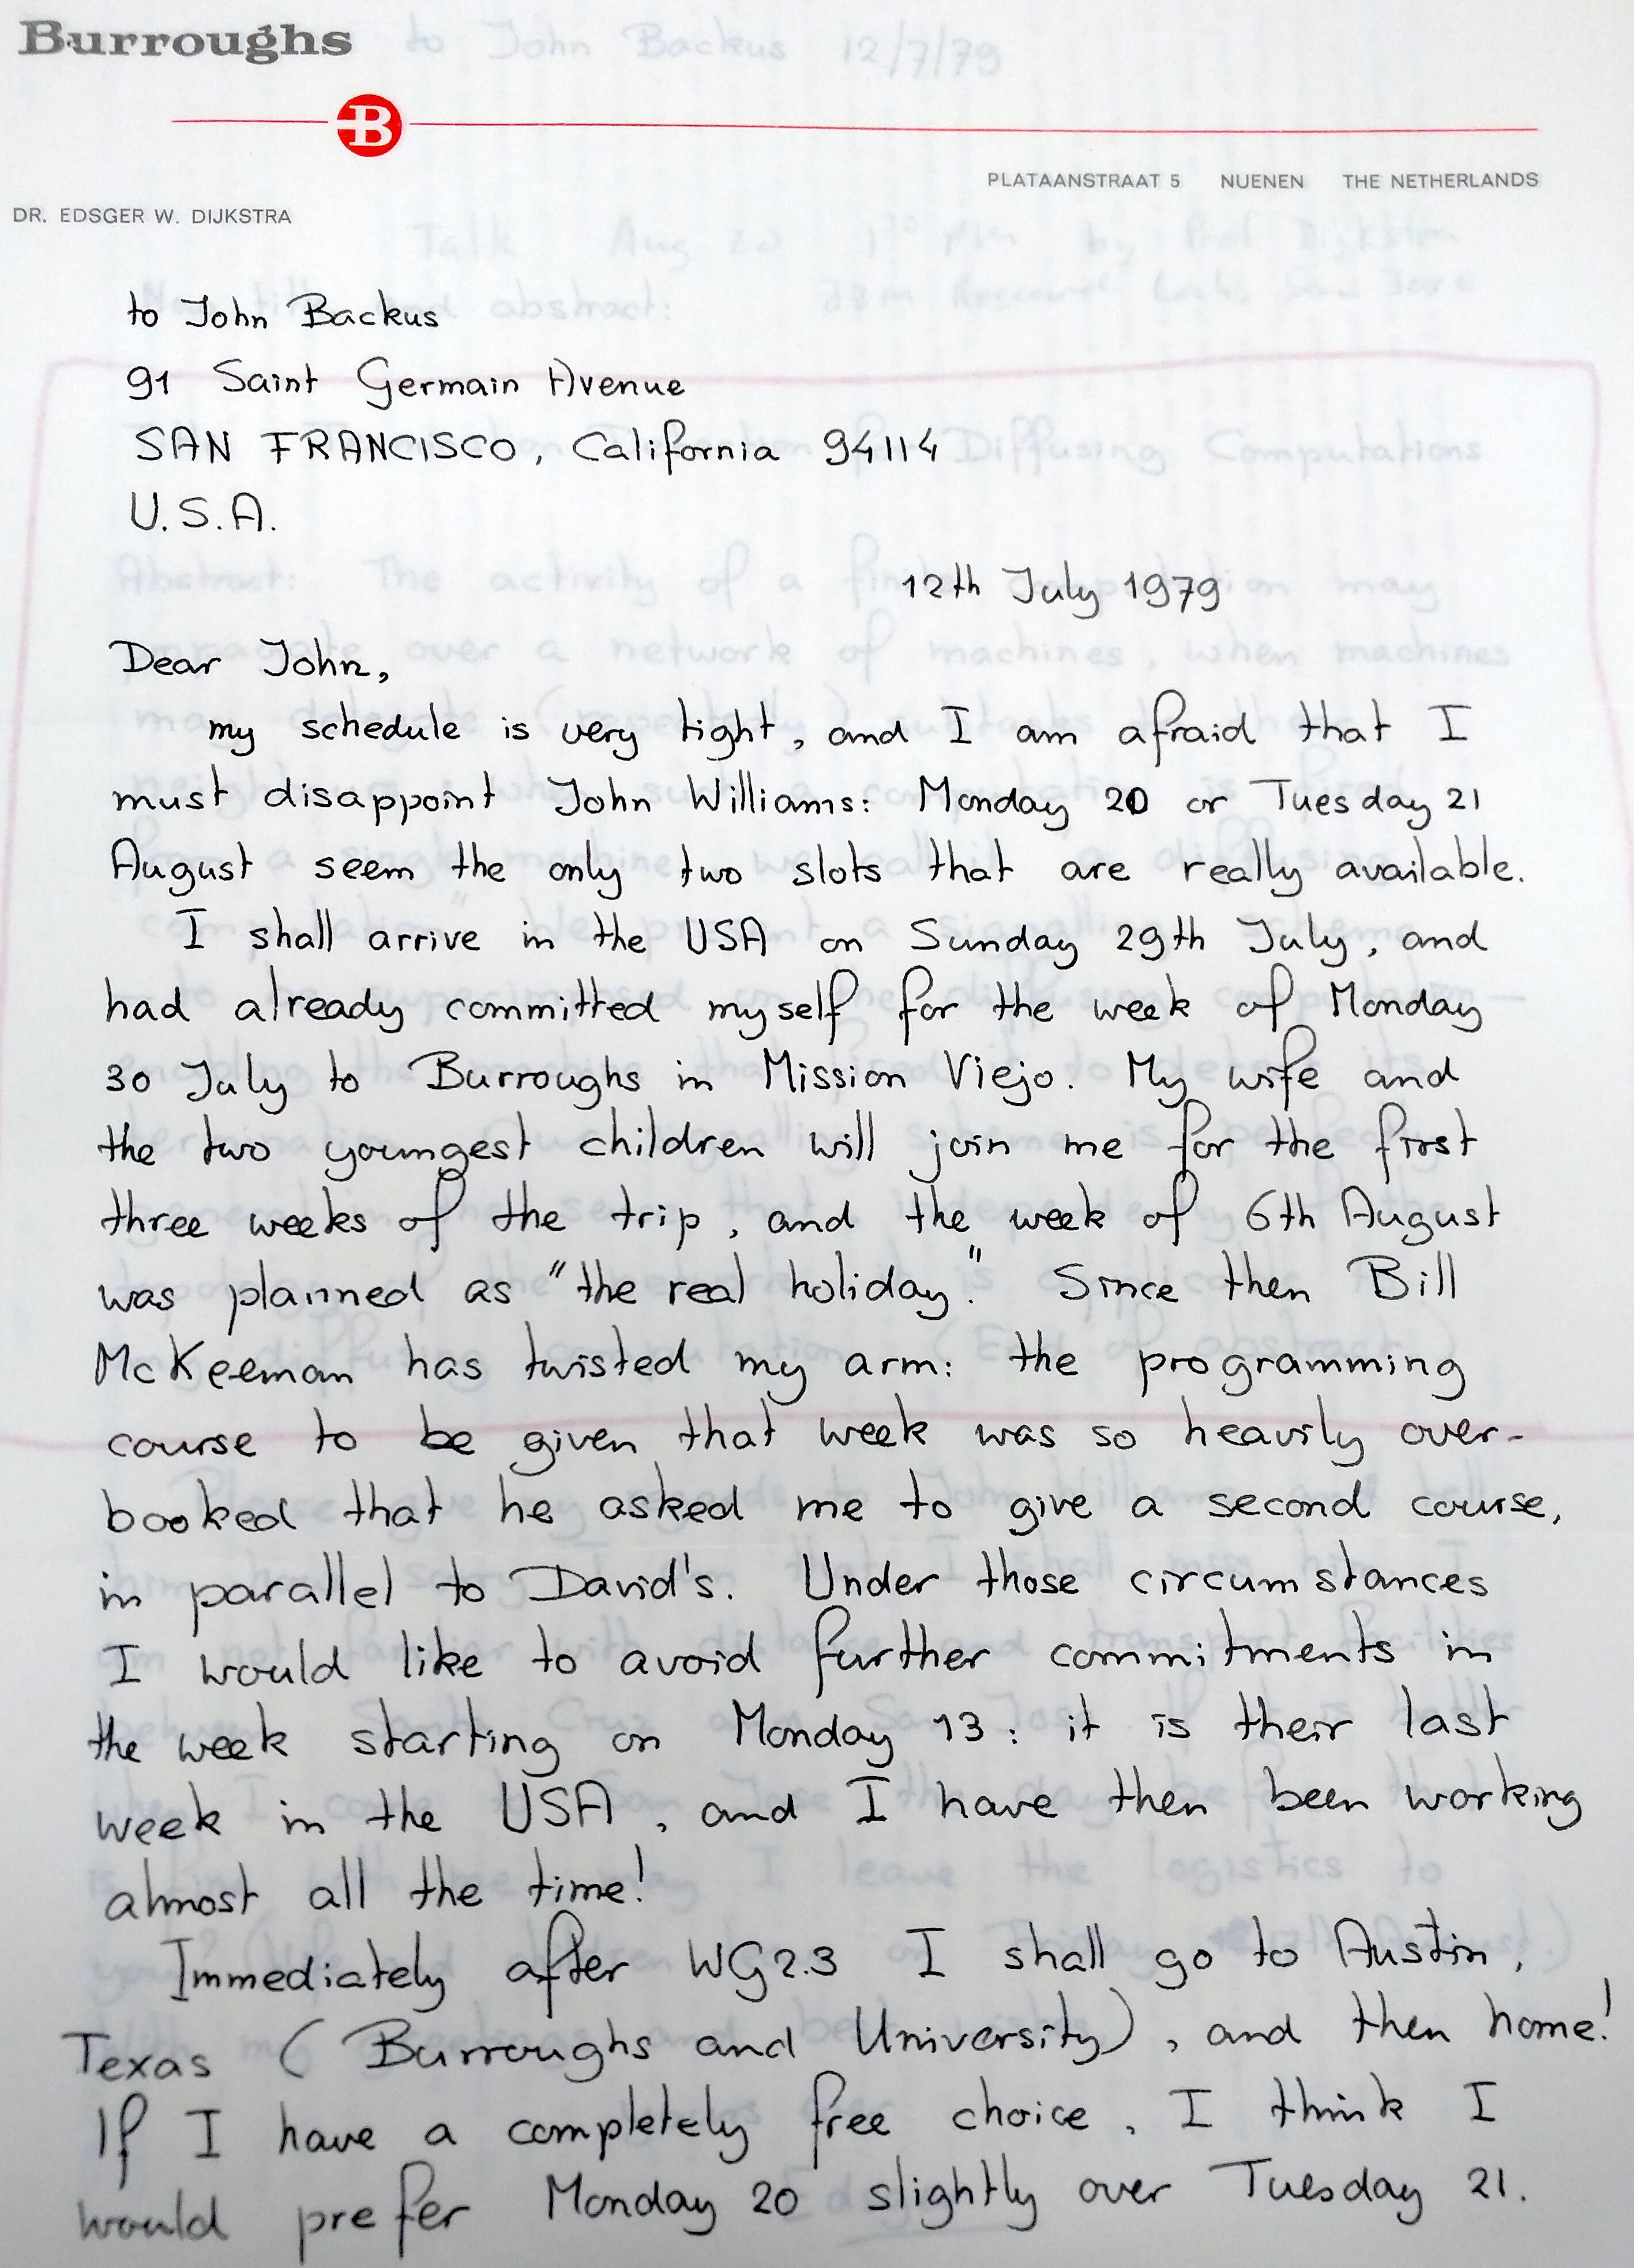 Burroughs
to John Backus 12/7/79
B
PLATAANSTRAAT 5 NUENEN THE NETHERLANDS
DR. EDSGER W. DIJKSTRA
Talk Aug 20 1³⁰ PM by Prof Dijkstra
abstract:
to John Backus
91 Saint Germain Avenue
SAN FRANCISCO, California 94114
Diffusing Computations
U.S.A.
Abstract: The activity of a may
12th July 1979
over a network of machines, when machines
Dear John,
my schedule is very tight, and I am afraid that I
must disappoint John Williams: Monday 20 or Tuesday 21
August seem the only two slots that are really available.
I shall arrive in the USA on Sunday 29th July, and
had already committed myself for the week of Monday
30 July to Burroughs in Mission Viejo. My wife and
the two youngest children will join me for the first
three weeks of the trip, and the week of 6th August
was planned as "the real holiday." Since then Bill
McKeeman has twisted my arm: the programming
course to be given that week was so heavily over-
booked that he asked me to give a second course,
in parallel to David's. Under those circumstances
I would like to avoid further commitments in
the week starting on Monday 13: it is their last
week in the USA, and I have then been working
almost all the time!
I leave the logistics to
Immediately after WG2.3 I shall go to Austin,
Texas (Burroughs and University), and then home!
If I have a completely free choice, I think I
would prefer Monday 20 slightly over Tuesday 21.